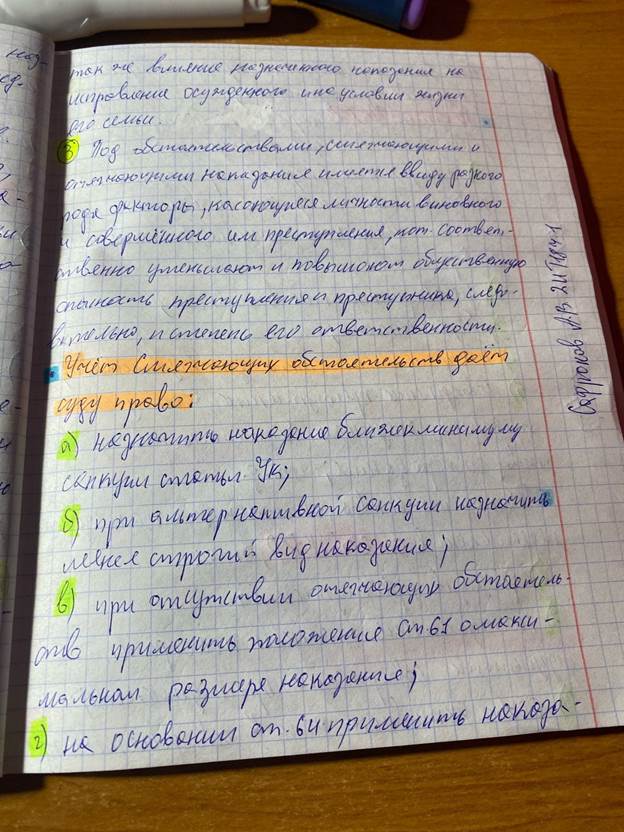 так же влияние назначенного наказания на
исправление осужденного и на условия жизни
его семьи.
3) Под обстоятельствами, смягчающими и
отягчающими наказание имеется ввиду разного
рода факторы, касающиеся личности виновного
и совершённого им преступления, кот. соответ-
ственно уменьшают и повышают общественную
опасность преступления и преступника, следо-
вательно, и степень его ответственности.
Учёт смягчающих обстоятельств даёт
суду право:
а) назначить наказание ближе к минимуму
санкции статьи УК;
б) при альтернативной санкции назначить
менее строгий вид наказания;
в) при отсутствии отягчающих обстоятель-
ств применить положение ст. 61 о макси-
мальном размере наказания;
г) на основании ст. 64 применить наказа-
Сафронов АВ